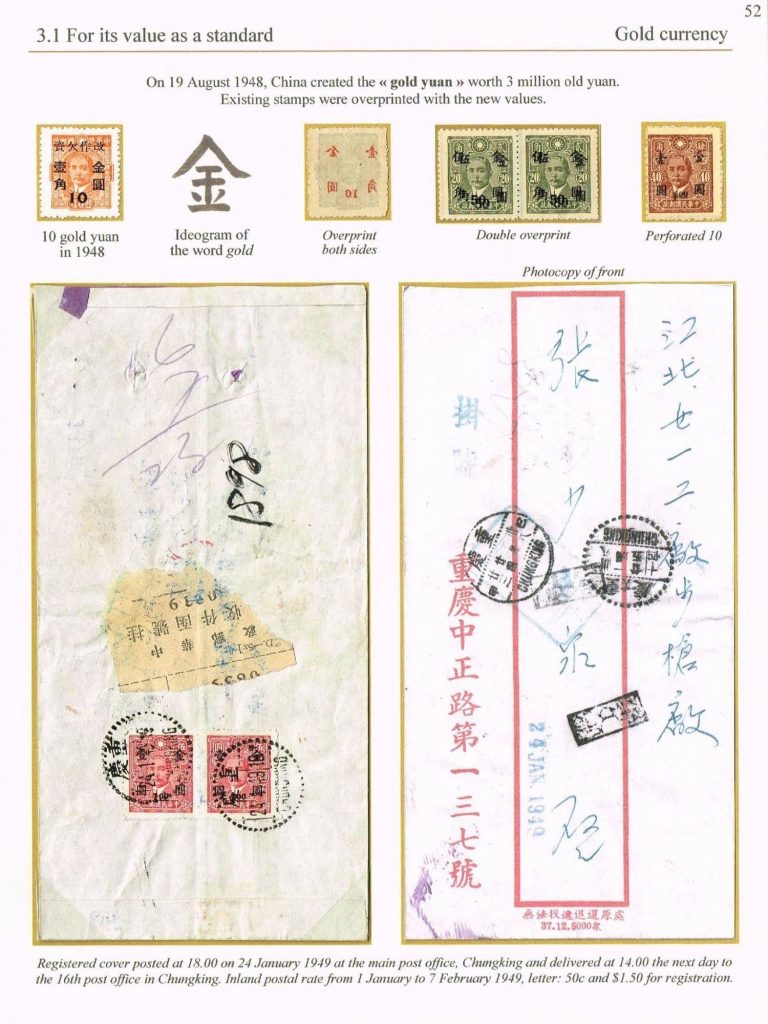 52
3.1 For its value as a standard
Gold currency
On 19 August 1948, China created the « gold yuan » worth 3 million old yuan.
Existing stamps were overprinted with the new values.
改作欠資
金圓
壹角
10
金
10 gold yuan
in 1948
Ideogram of
the word gold
Overprint
both sides
Double overprint
Perforated 10
Photocopy of front
1898
0839
重慶
江北廿一工廠步槍廠
張少泉
掛號
CHUNGKING
24 JAN. 1949
重慶中正路第一三七號
無法投遞退還原處
37.12.5000
Registered cover posted at 18.00 on 24 January 1949 at the main post office, Chungking and delivered at 14.00 the next day to
the 16th post office in Chungking. Inland postal rate from 1 January to 7 February 1949, letter: 50c and $1.50 for registration.